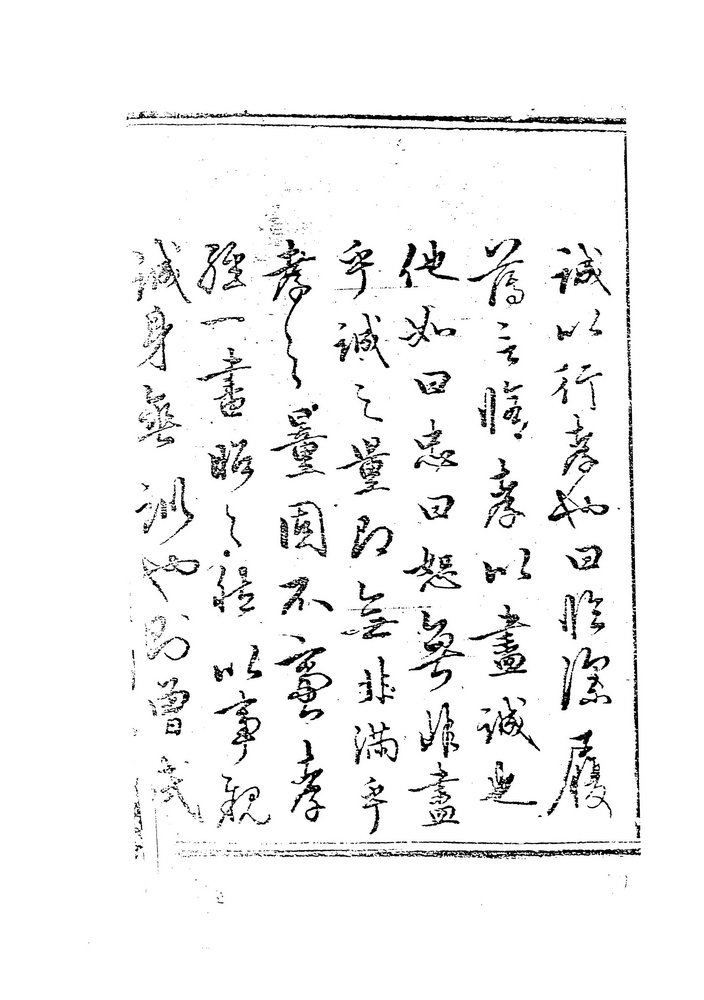 誠以行孝也曰臨深履
薄言孝以盡誠也
他如曰忠曰恕無非盡
乎誠之量即無非滿乎
孝之量固不啻孝
經一書昭々以事親
誠身垂訓也則曾氏